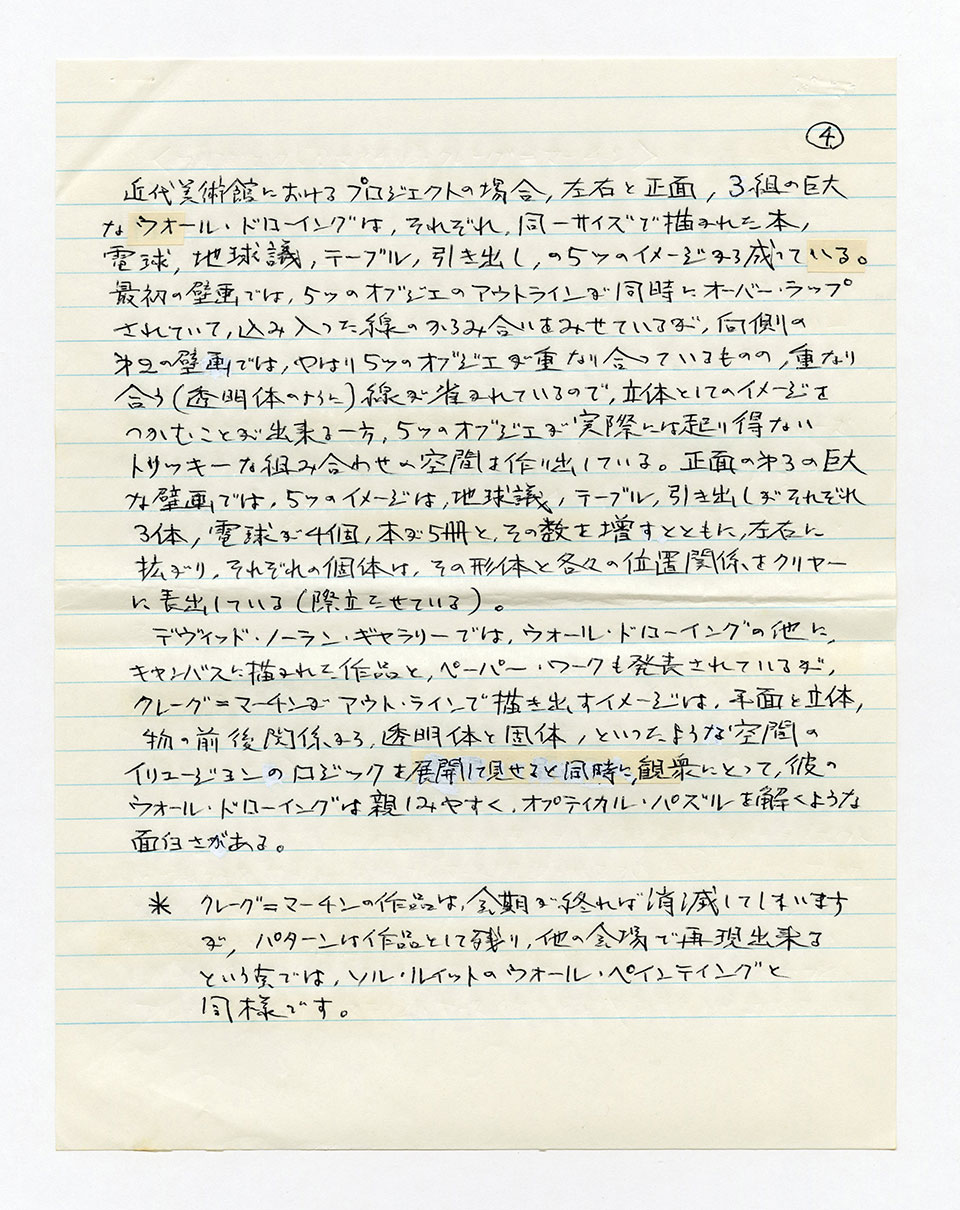 ④
近代美術館におけるプロジェクトの場合,左右と正面,3組の巨大
なウォール・ドローイングは,それぞれ,同一サイズで描かれた本,
電球,地球議,テーブル,引き出し,の5つのイメージから成っている。
最初の壁画では,5つのオブジェのアウトラインが同時にオーバー・ラップ
されていて,込み入った線のからみ合いをみせているが,向側の
第2の壁画では,やはり5つのオブジェが重なり合っているものの,重なり
合う(透明体のように)線が省かれているので,立体としてのイメージを
つかむことが出来る一方,5つのオブジェが実際には起り得ない
トリッキーな組み合わせの空間を作り出している。正面の第3の巨大
な壁画では,5つのイメージは,地球議,テーブル,引き出しがそれぞれ
3体,電球が4個,本が5冊と,その数を増すとともに,左右に
拡がり,それぞれの個体は,その形体と各々の位置関係をクリヤー
に表出している(際立たせている)。
デヴィッド・ノーラン・ギャラリーでは,ウォール・ドローイングの他に,
キャンバスに描かれた作品と,ペーパー・ワークも発表されているが,
クレーグ=マーチンがアウト・ラインで描き出すイメージは,平面と立体,
物の前後関係から,透明体と固体,といったような空間の
イリュージョンのロジックを展開して見せると同時に,観衆にとって,彼の
ウォール・ドローイングは親しみやすく,オプティカル・パズルを解くような
面白さがある。
* クレーグ=マーチンの作品は,会期が終れば消滅してしまいます
が,パターンは作品として残り,他の会場で再現出来る
という点では,ソル・ルイットのウォール・ペインティングと
同様です。